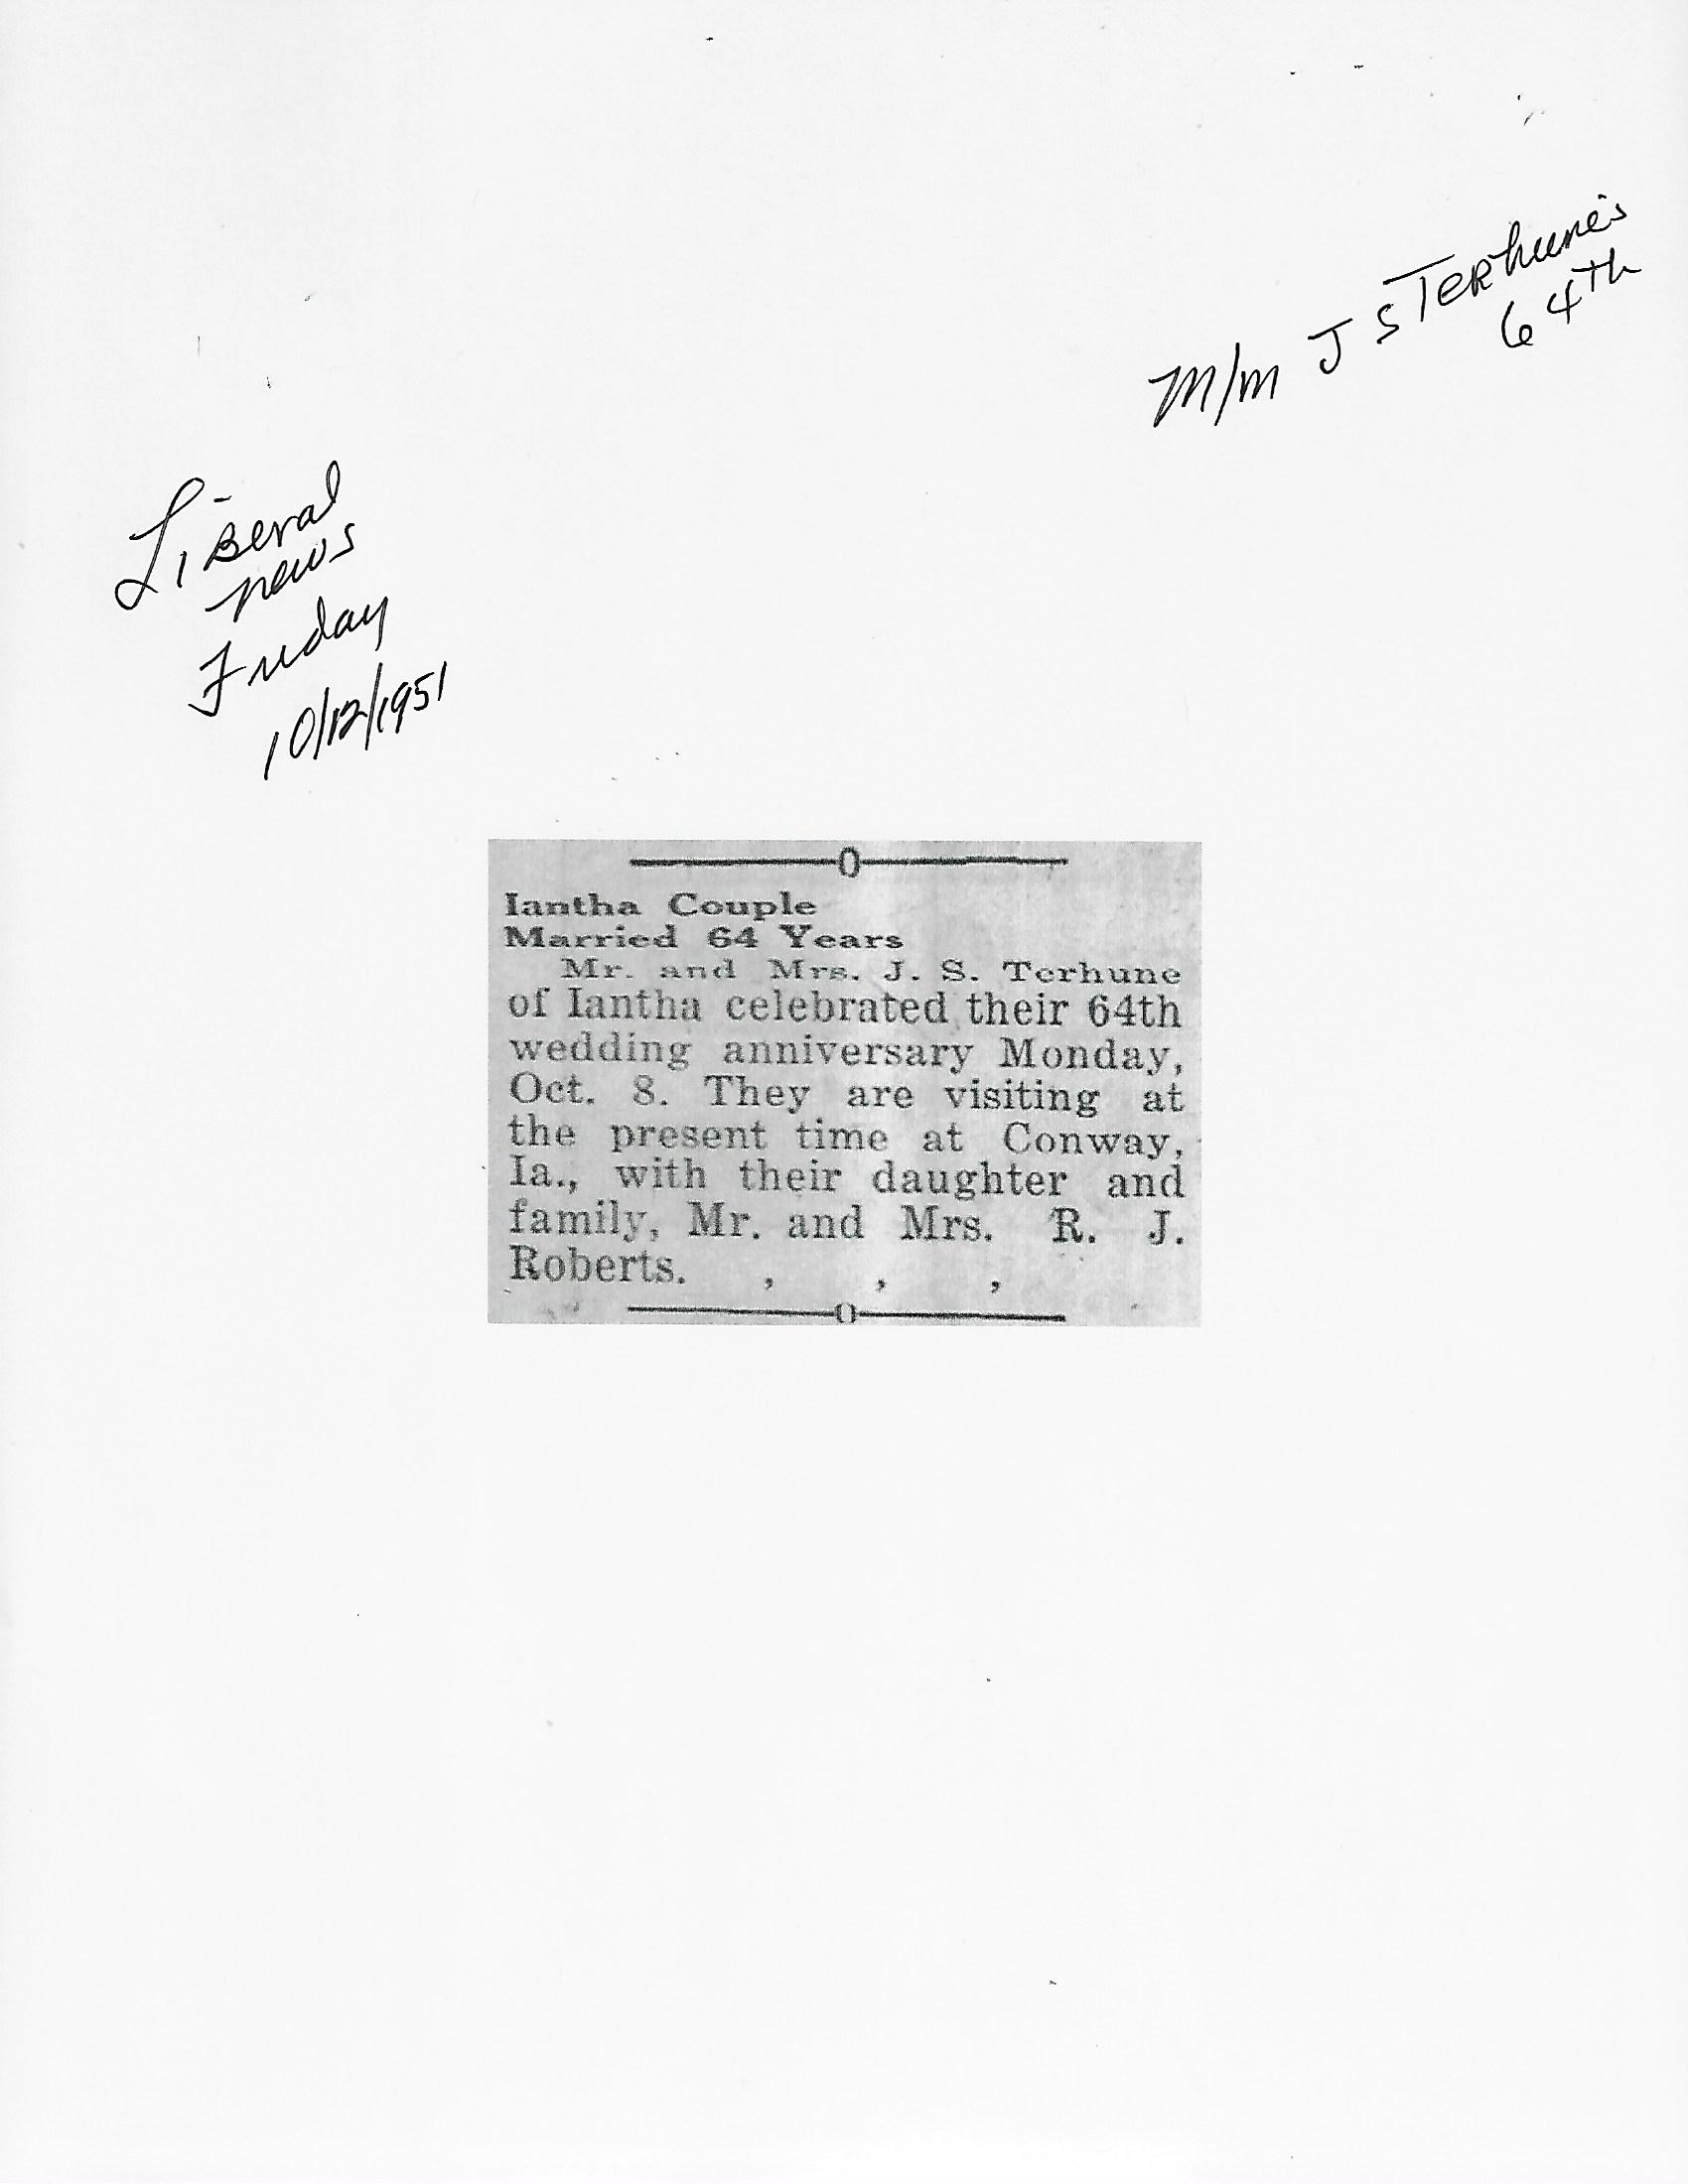 M/M J S TERhune's
64Th
LiBeral
news
Friday
10/12/1951
Iantha Couple
Married 64 Years
Mr. and Mrs. J. S. Terhune
of Iantha celebrated their 64th
wedding anniversary Monday,
Oct. 8. They are visiting at
the present time at Conway,
Ia., with their daughter and
family, Mr. and Mrs. R. J.
Roberts. , , ,